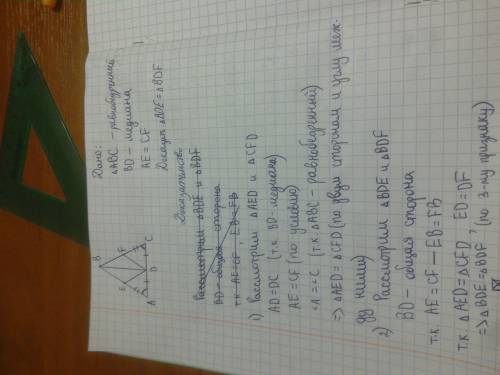 Дано:
△ABC - равнобедренный
BD - медиана
AE = CF
Доказать △BDE = △BDF
B
E F
A D C
Доказательство
Рассмотрим △BDE и △BDF
BD - общая сторона
т.к AE = CF, EB = FB
1) Рассмотрим △AED и △CFD
AD = DC (т.к. BD - медиана)
AE = CF (по условию)
∠A = ∠C (т.к. △ABC - равнобедренный)
⇒ △AED = △CFD (по двум сторонам и углу меж-
ду ними)
2) Рассмотрим △BDE и △BDF
BD - общая сторона
т.к AE = CF - EB = FB
т.к. △AED = △CFD, ED = DF
⇒ △BDE = △BDF, (по 3-му признаку)